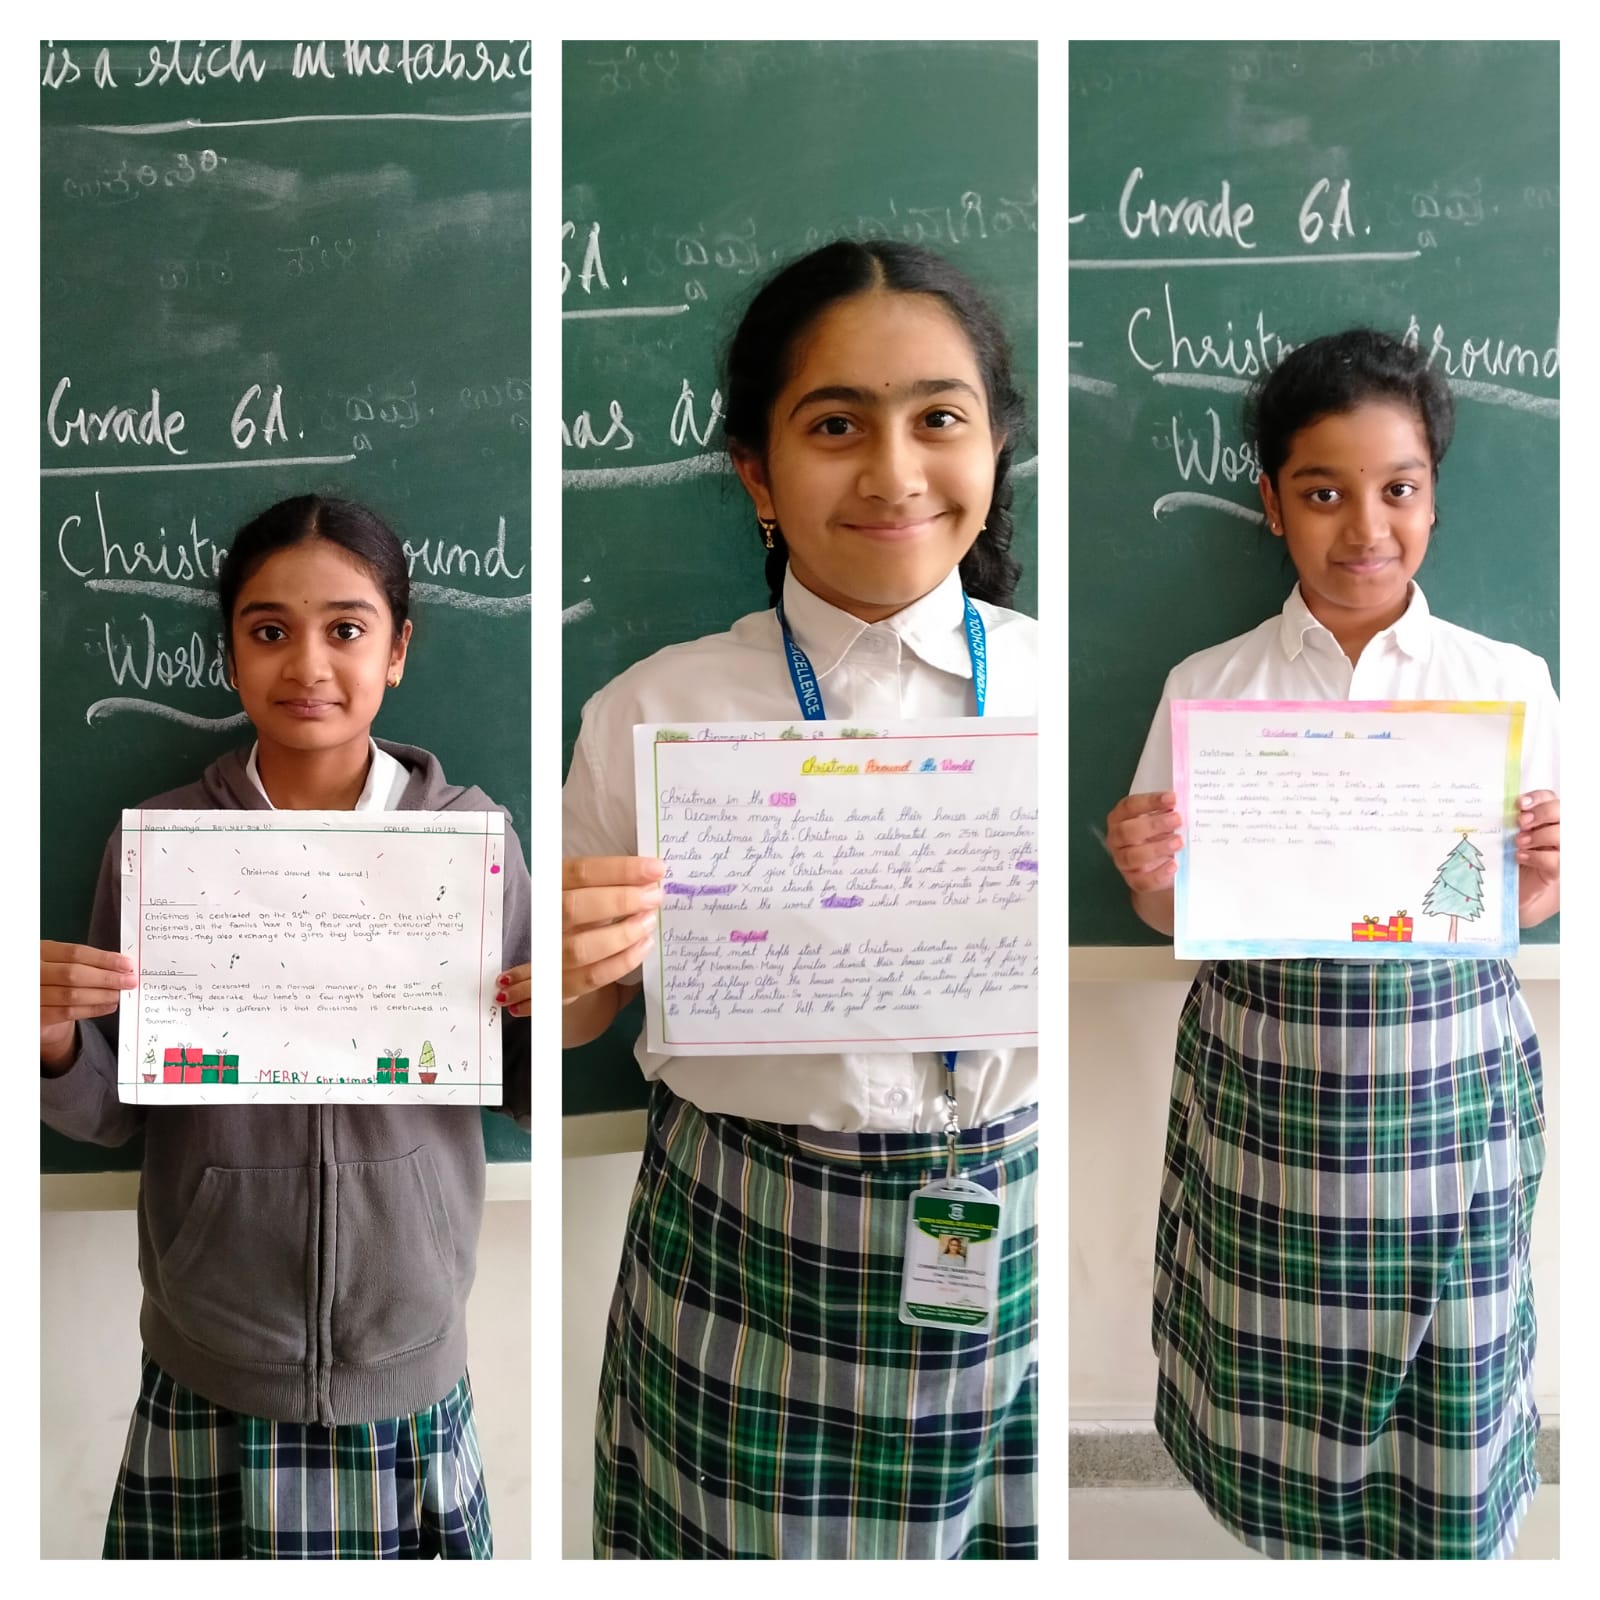 is a stich in the fabric
Grade 6A.
Christ
ound
World
CCA 12/12/22
Christmas around the world!
USA-
Christmas is celebrated on the 25th of December. On the night of
Christmas, all the familes have a big feast and greet everyone merry
Christmas. They also exchange the gifts they bought for everyone.
Christmas is celebrated in a normal manner, On the 25th of
December. They decorate their home's a few nights before christmas.
One thing that is different is that christmas is celebrated in
Summer...
MERRY christmas!
6A.
as Ar
EXCELLENCE
SCHOOL OF
Name- Chinmayee.M Class- 6A Roll no- 2
Christmas Around the World
Christmas in the USA
In December many families decorate their houses with Christ
and christmas lights. Christmas is celebrated on 25th December.
families get together for a festive meal after exchanging gifts.
to send and give Christmas cards. People write on cards:
Merry Xmas! Xmas stands for christmas, the X originates from the
which represents the word which means Christ in English.
Christmas in England
In England, most people start with Christmas decorations early, that is
mid of November. Many families decorate their houses with lots of fairy
sparkling displays. Often the houses owners collect donations from visitors
in aid of local charities. So remember if you like a display place some
the honesty boxes and help the good causes.
Grade 6A.
Christm Around
Wor
Christmas Around the world
Christmas in Australia:
Australia is the country below the
equator, so when it is winter in India, it's summer in Australia.
Australia celebrates christmas by decorating X-mas trees with
ornaments, giving cards to family and
from other countries, but Australia celebrates christmas in summer,
is very different from others.